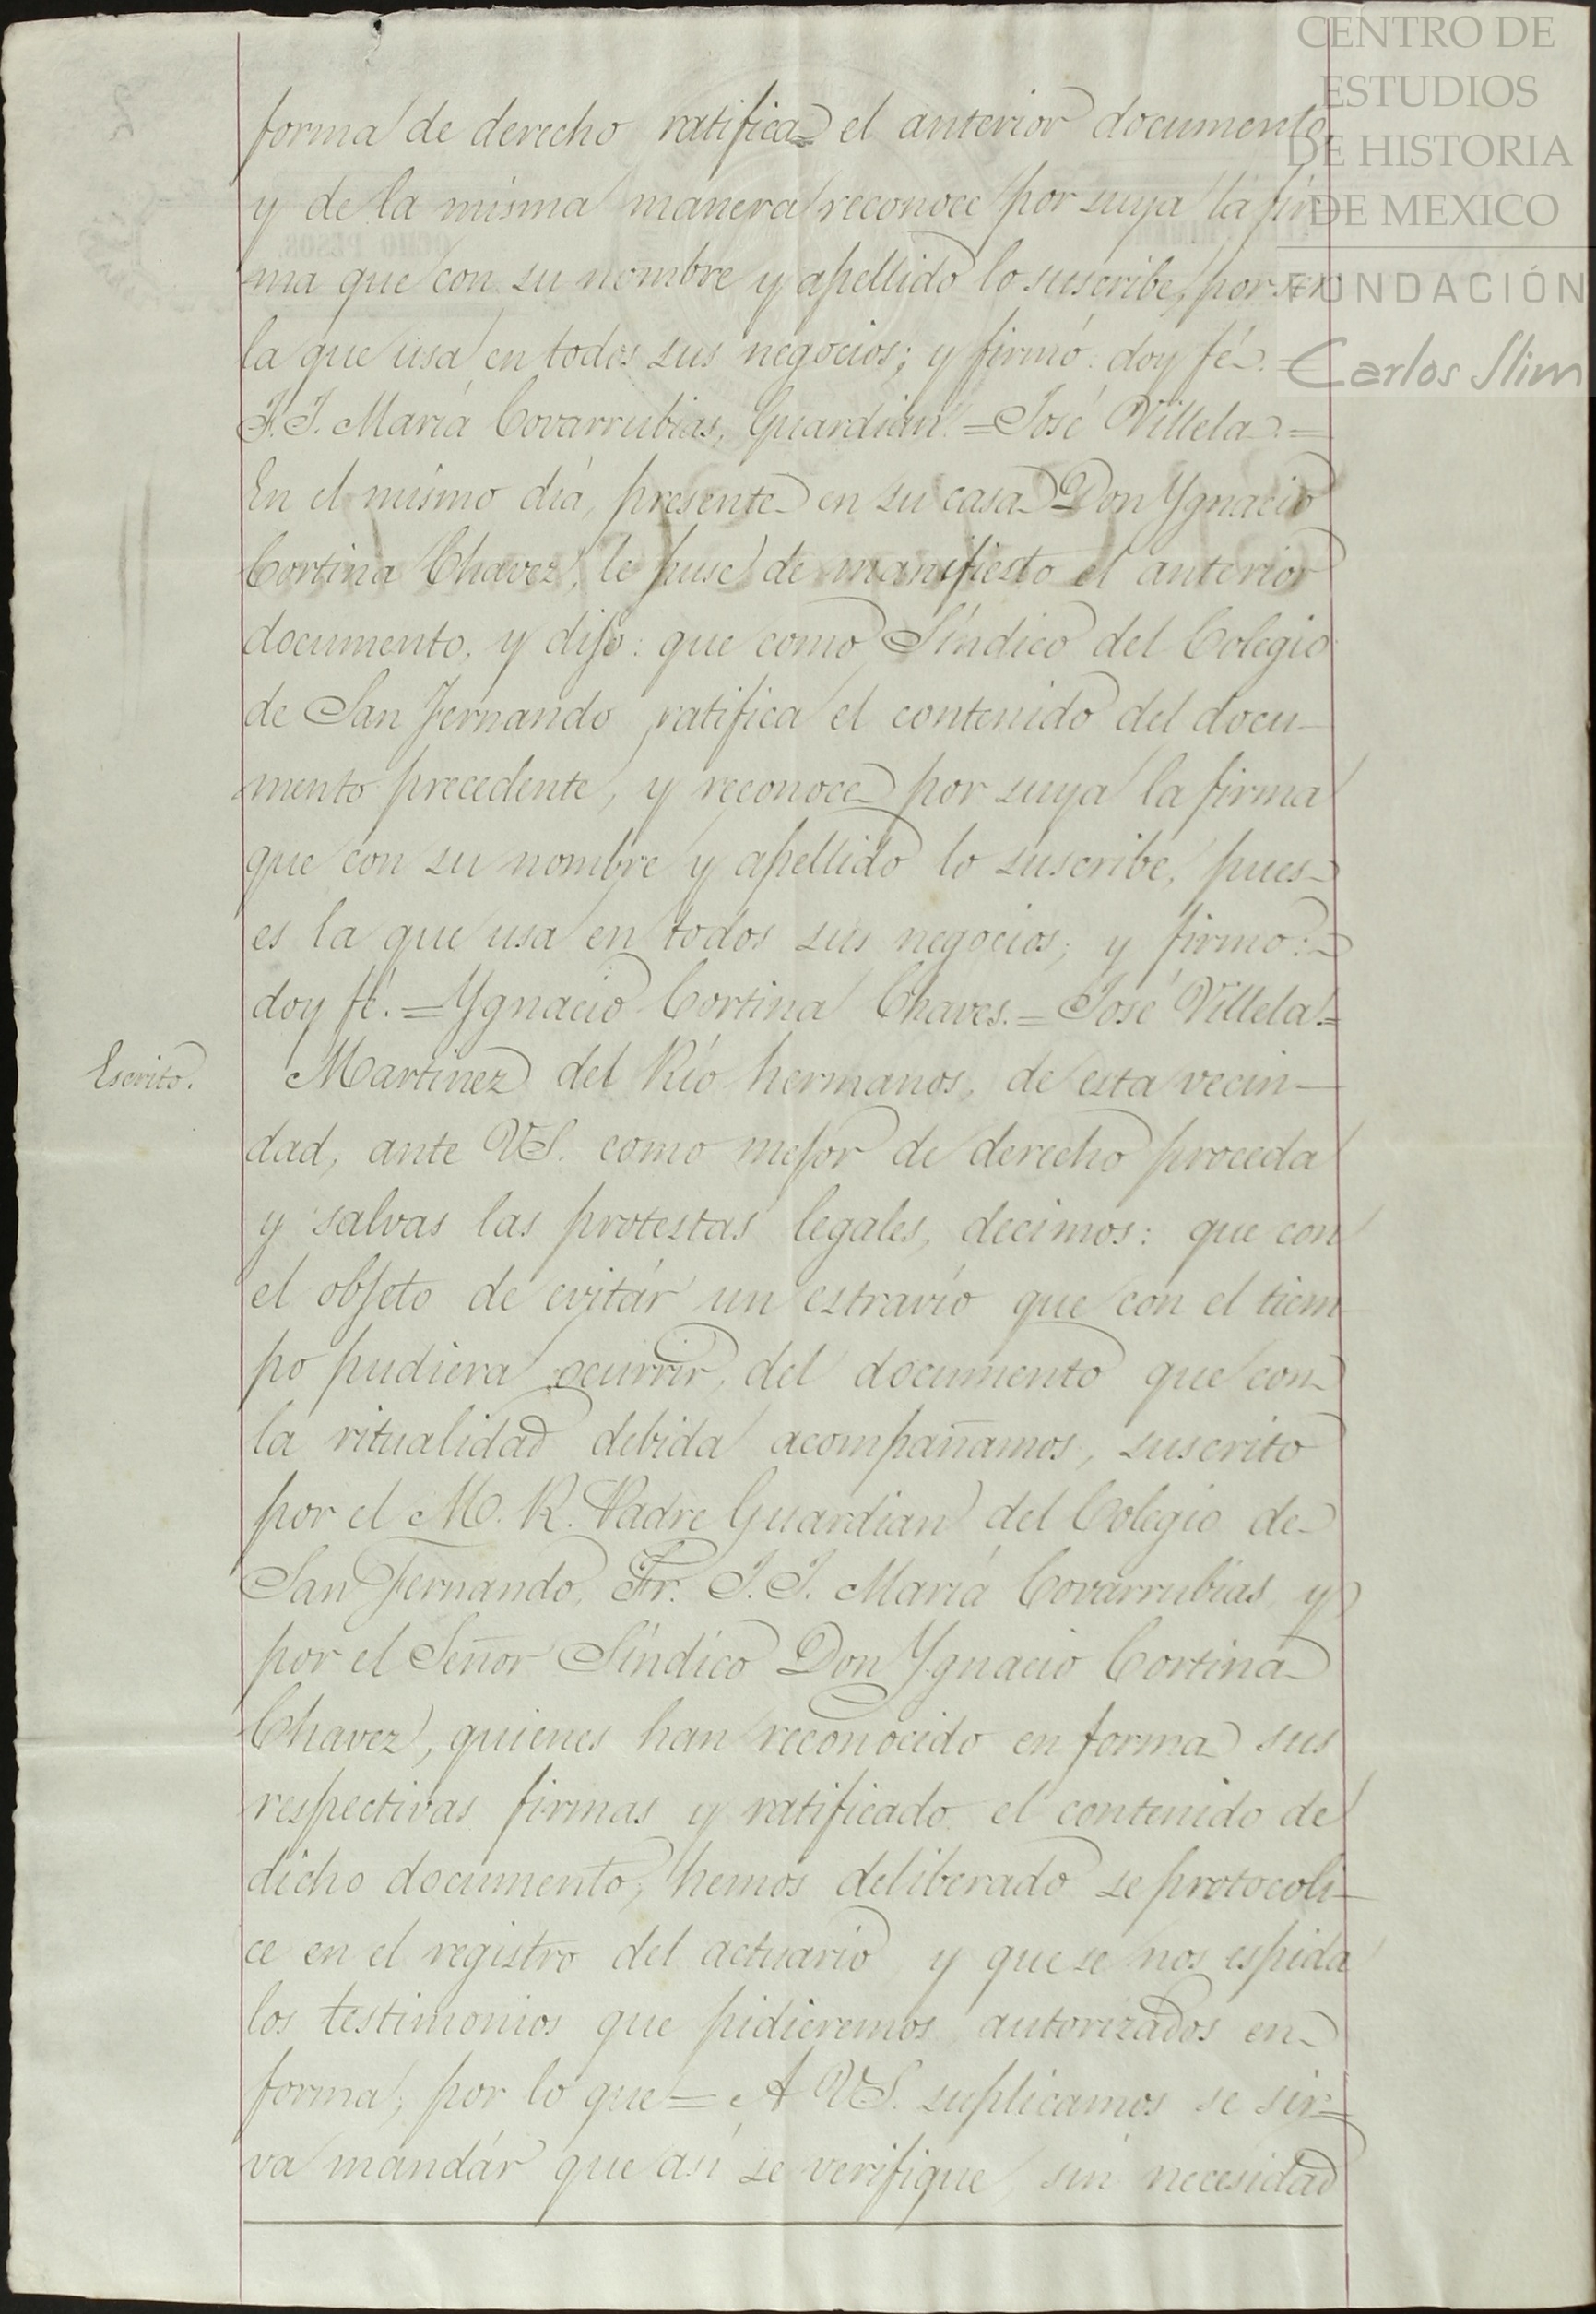 CENTRO DE
ESTUDIOS
DE HISTORIA
DE MEXICO
FUNDACIÓN
Carlos Slim
forma de derecho ratifica el anterior documento,
y de la misma manera reconoce por suya la fir
ma que con su nombre y apellido lo suscribe, por ser
la que usa en todos sus negocios; y firmó: doy fé. =
F. J. María Covarrubias, Guardian. = José Villela. =
En el mismo dia, presente en su casa Don Ygnacio
Cortina Chavez, le puse de manifiesto el anterior
documento, y dijo: que como Síndico del Colegio
de San Fernando ratifica el contenido del docu-
mento precedente, y reconoce por suya la firma
que con su nombre y apellido lo suscribe, pues
es la que usa en todos sus negocios; y firmo:
doy fé. = Ygnacio Cortina Chaves. = José Villela. =
Escrito. Martinez del Rio hermanos, de esta vecin-
dad, ante VS. como mejor de derecho proceda
y salvas las protestas legales, decimos: que con
el objeto de evitár un estravío que con el tiem-
po pudiera ocurrir, del documento que con
la ritualidad debida acompañamos, suscrito
por el M. R. Padre Guardian del Colegio de
San Fernando, Fr. J. J. María Covarrubias, y
por el Señor Síndico Don Ygnacio Cortina
Chavez, quienes han reconocido en forma sus
respectivas firmas y ratificado el contenido de
dicho documento, hemos deliberado se protocoli-
ce en el registro del actuario y que se nos espida
los testimonios que pidieremos autorizados en
forma; por lo que = A VS. suplicamos se sir=
va mandár que así se verifique, sin necesidad